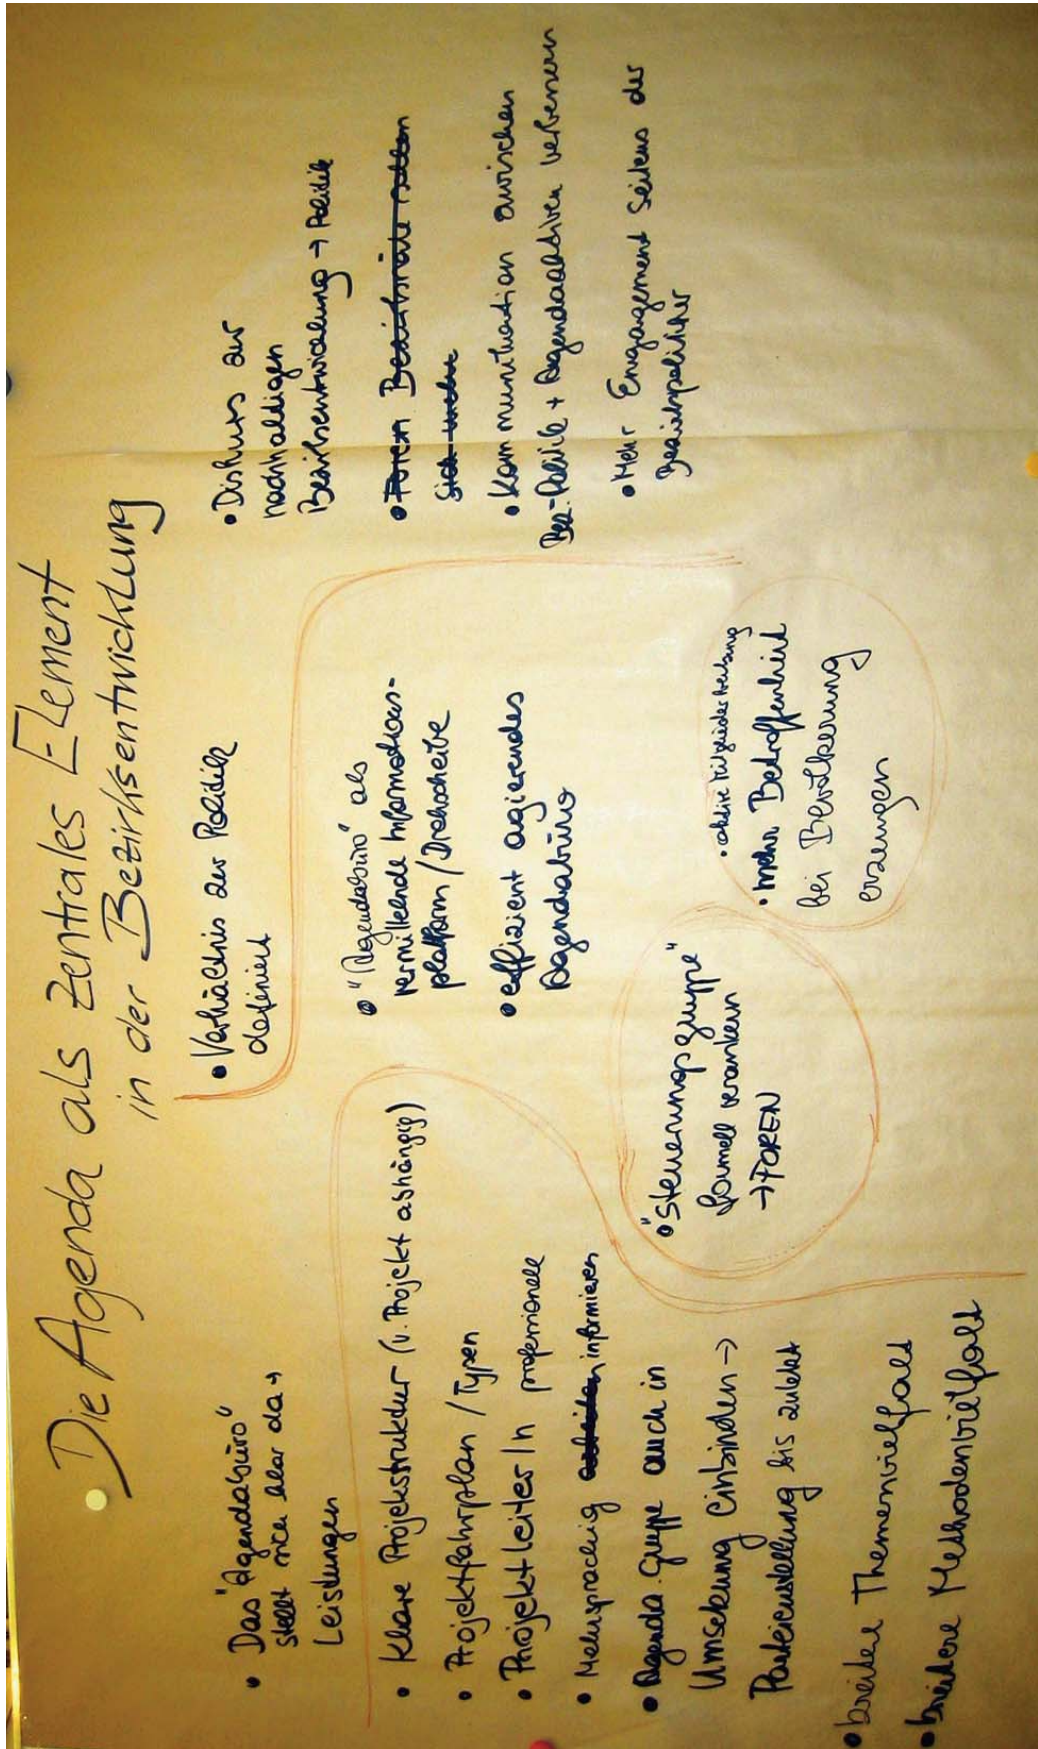 Die Agenda als zentrales Element
in der Bezirksentwicklung
• Das "Agendabüro"
stellt sich klar da →
Leistungen
• Klare Projektstruktur (v. Projekt abhängig)
• Projektfahrplan / Typen
• ProjektleiterIn professionell
• Mehrsprachig informieren
• Agenda Gruppe auch in
Umsetzung einbinden →
Parteienstellung bis zuletzt
• breitere Themenvielfalt
• breitere Methodenvielfalt
• Verhältnis zur Politik
definiert
• "Agendabüro" als
vermittelnde Informations-
plattform / Drehscheibe
• effizient agierendes
Agendabüro
• "Steuerungsgruppe"
formell verankern
→ FOREN
• aktive Mitgliederwerbung
• mehr Betroffenheit
bei Bevölkerung
erzeugen
• Diskurs zur
nachhaltigen
Bezirksentwicklung → Politik
• Foren Bezirksräte sollen
sich mehr
• Kommunikation zwischen
Bez-Politik + Agendaaktiven verbessern
• Mehr Engagement seitens der
Bezirkspolitiker